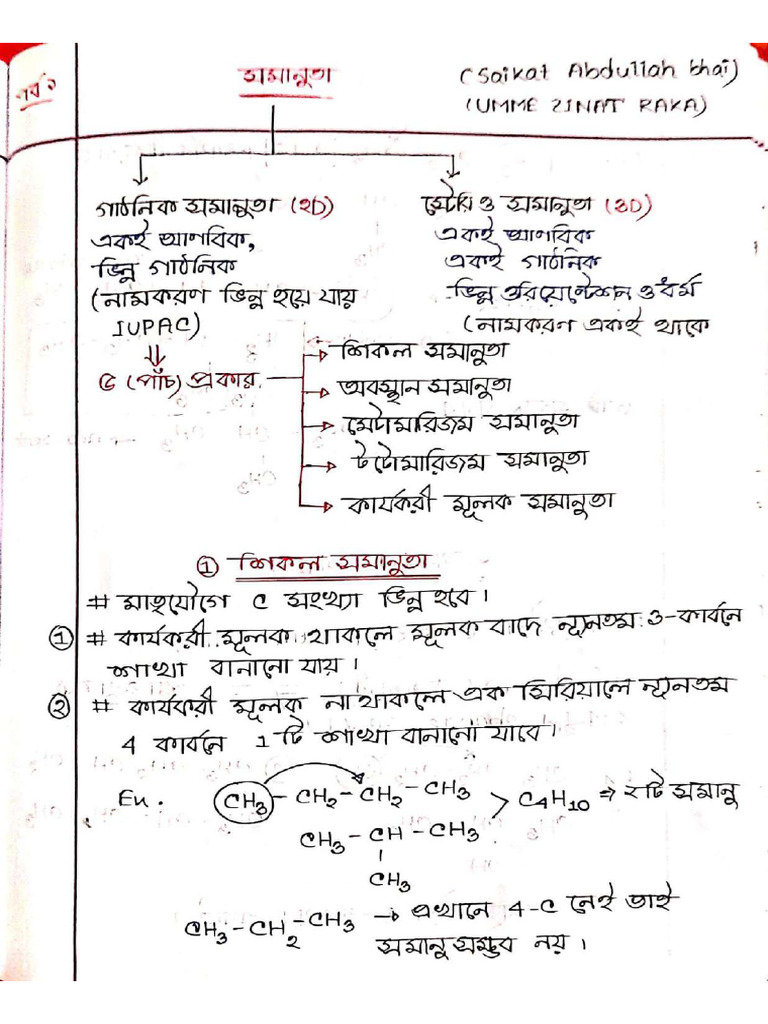 পর্ব ১
সমানুতা
(Saikat Abdullah bhai)
(UMME ZINAT RAKA)
গাঠনিক সমানুতা (2D)
একই আণবিক,
ভিন্ন গাঠনিক
(নামকরণ ভিন্ন হয়ে যায়
IUPAC)
৫ (পাঁচ) প্রকার
স্টেরিও সমানুতা (3D)
একই আণবিক
একই গাঠনিক
ভিন্ন ওরিয়েন্টেশন ও ধর্ম
(নামকরণ একই থাকে
শিকল সমানুতা
অবস্থান সমানুতা
মেটামারিজম সমানুতা
টটোমারিজম সমানুতা
কার্যকরী মূলক সমানুতা
① শিকল সমানুতা
# মাতৃযৌগে C সংখ্যা ভিন্ন হবে।
① # কার্যকরী মূলক থাকলে মূলক বাদে ন্যূনতম ৩-কার্বনে
শাখা বানানো যায়।
② # কার্যকরী মূলক না থাকলে এক সিরিয়ালে ন্যূনতম
4 কার্বনে 1টি শাখা বানানো যাবে।
Ex. CH3 - CH2 - CH2 - CH3
CH3 - CH - CH3
CH3
> C4H10 ⇒ ২টি সমানু
CH3 - CH2 - CH3 → এখানে 4-C নেই তাই
সমানু সম্ভব নয়।